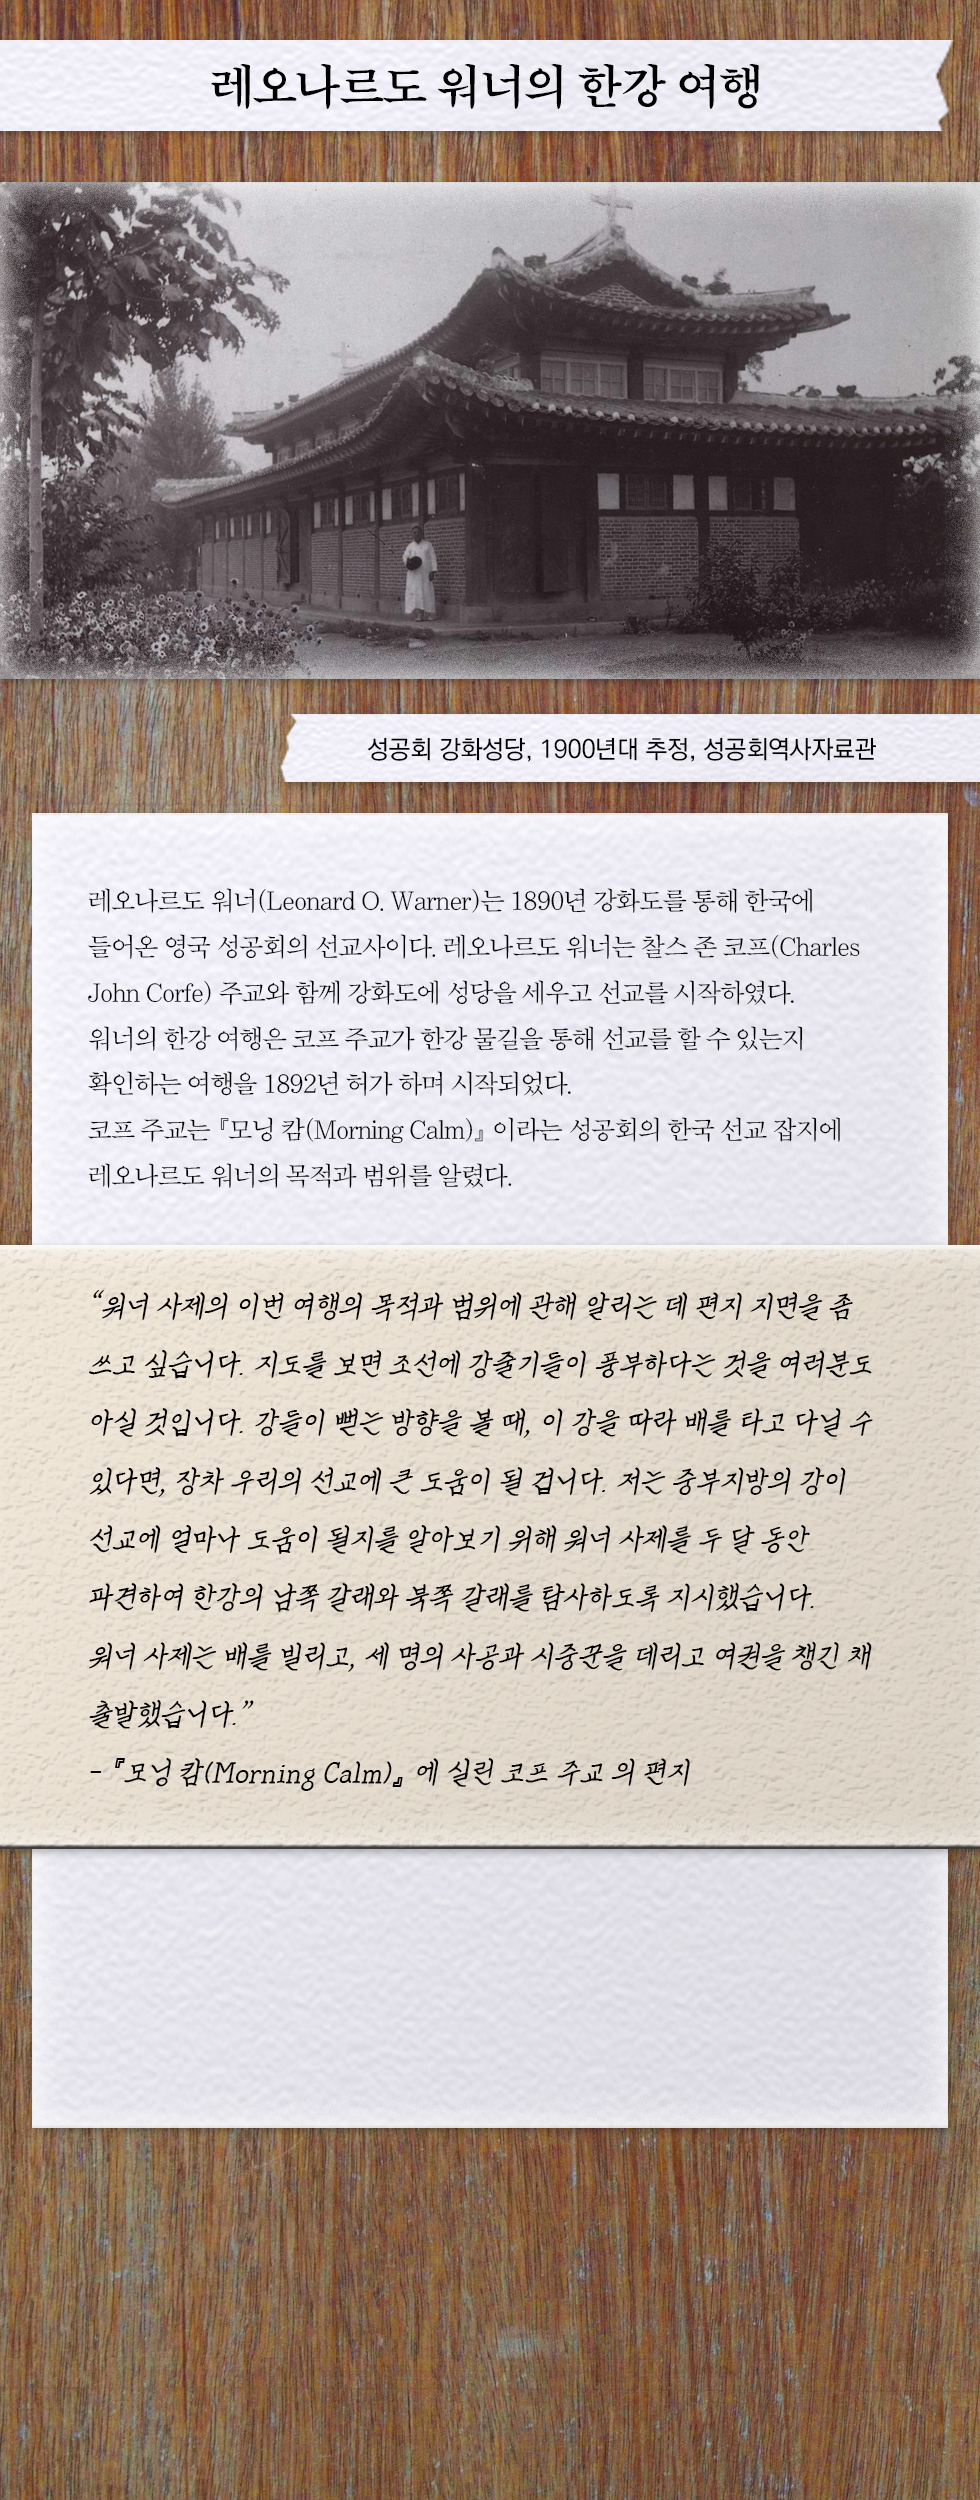 레오나르도 워너의 한강 여행
성공회 강화성당, 1900년대 추정, 성공회역사자료관
레오나르도 워너(Leonard O. Warner)는 1890년 강화도를 통해 한국에
들어온 영국 성공회의 선교사이다. 레오나르도 워너는 찰스 존 코프(Charles
John Corfe) 주교와 함께 강화도에 성당을 세우고 선교를 시작하였다.
워너의 한강 여행은 코프 주교가 한강 물길을 통해 선교를 할 수 있는지
확인하는 여행을 1892년 허가 하며 시작되었다.
코프 주교는 『모닝 캄(Morning Calm)』 이라는 성공회의 한국 선교 잡지에
레오나르도 워너의 목적과 범위를 알렸다.
“워너 사제의 이번 여행의 목적과 범위에 관해 알리는 데 편지 지면을 좀
쓰고 싶습니다. 지도를 보면 조선에 강줄기들이 풍부하다는 것을 여러분도
아실 것입니다. 강들이 뻗는 방향을 볼 때, 이 강을 따라 배를 타고 다닐 수
있다면, 장차 우리의 선교에 큰 도움이 될 겁니다. 저는 중부지방의 강이
선교에 얼마나 도움이 될지를 알아보기 위해 워너 사제를 두 달 동안
파견하여 한강의 남쪽 갈래와 북쪽 갈래를 탐사하도록 지시했습니다.
워너 사제는 배를 빌리고, 세 명의 사공과 시중꾼을 데리고 여권을 챙긴 채
출발했습니다.”
- 『모닝 캄(Morning Calm)』 에 실린 코프 주교 의 편지